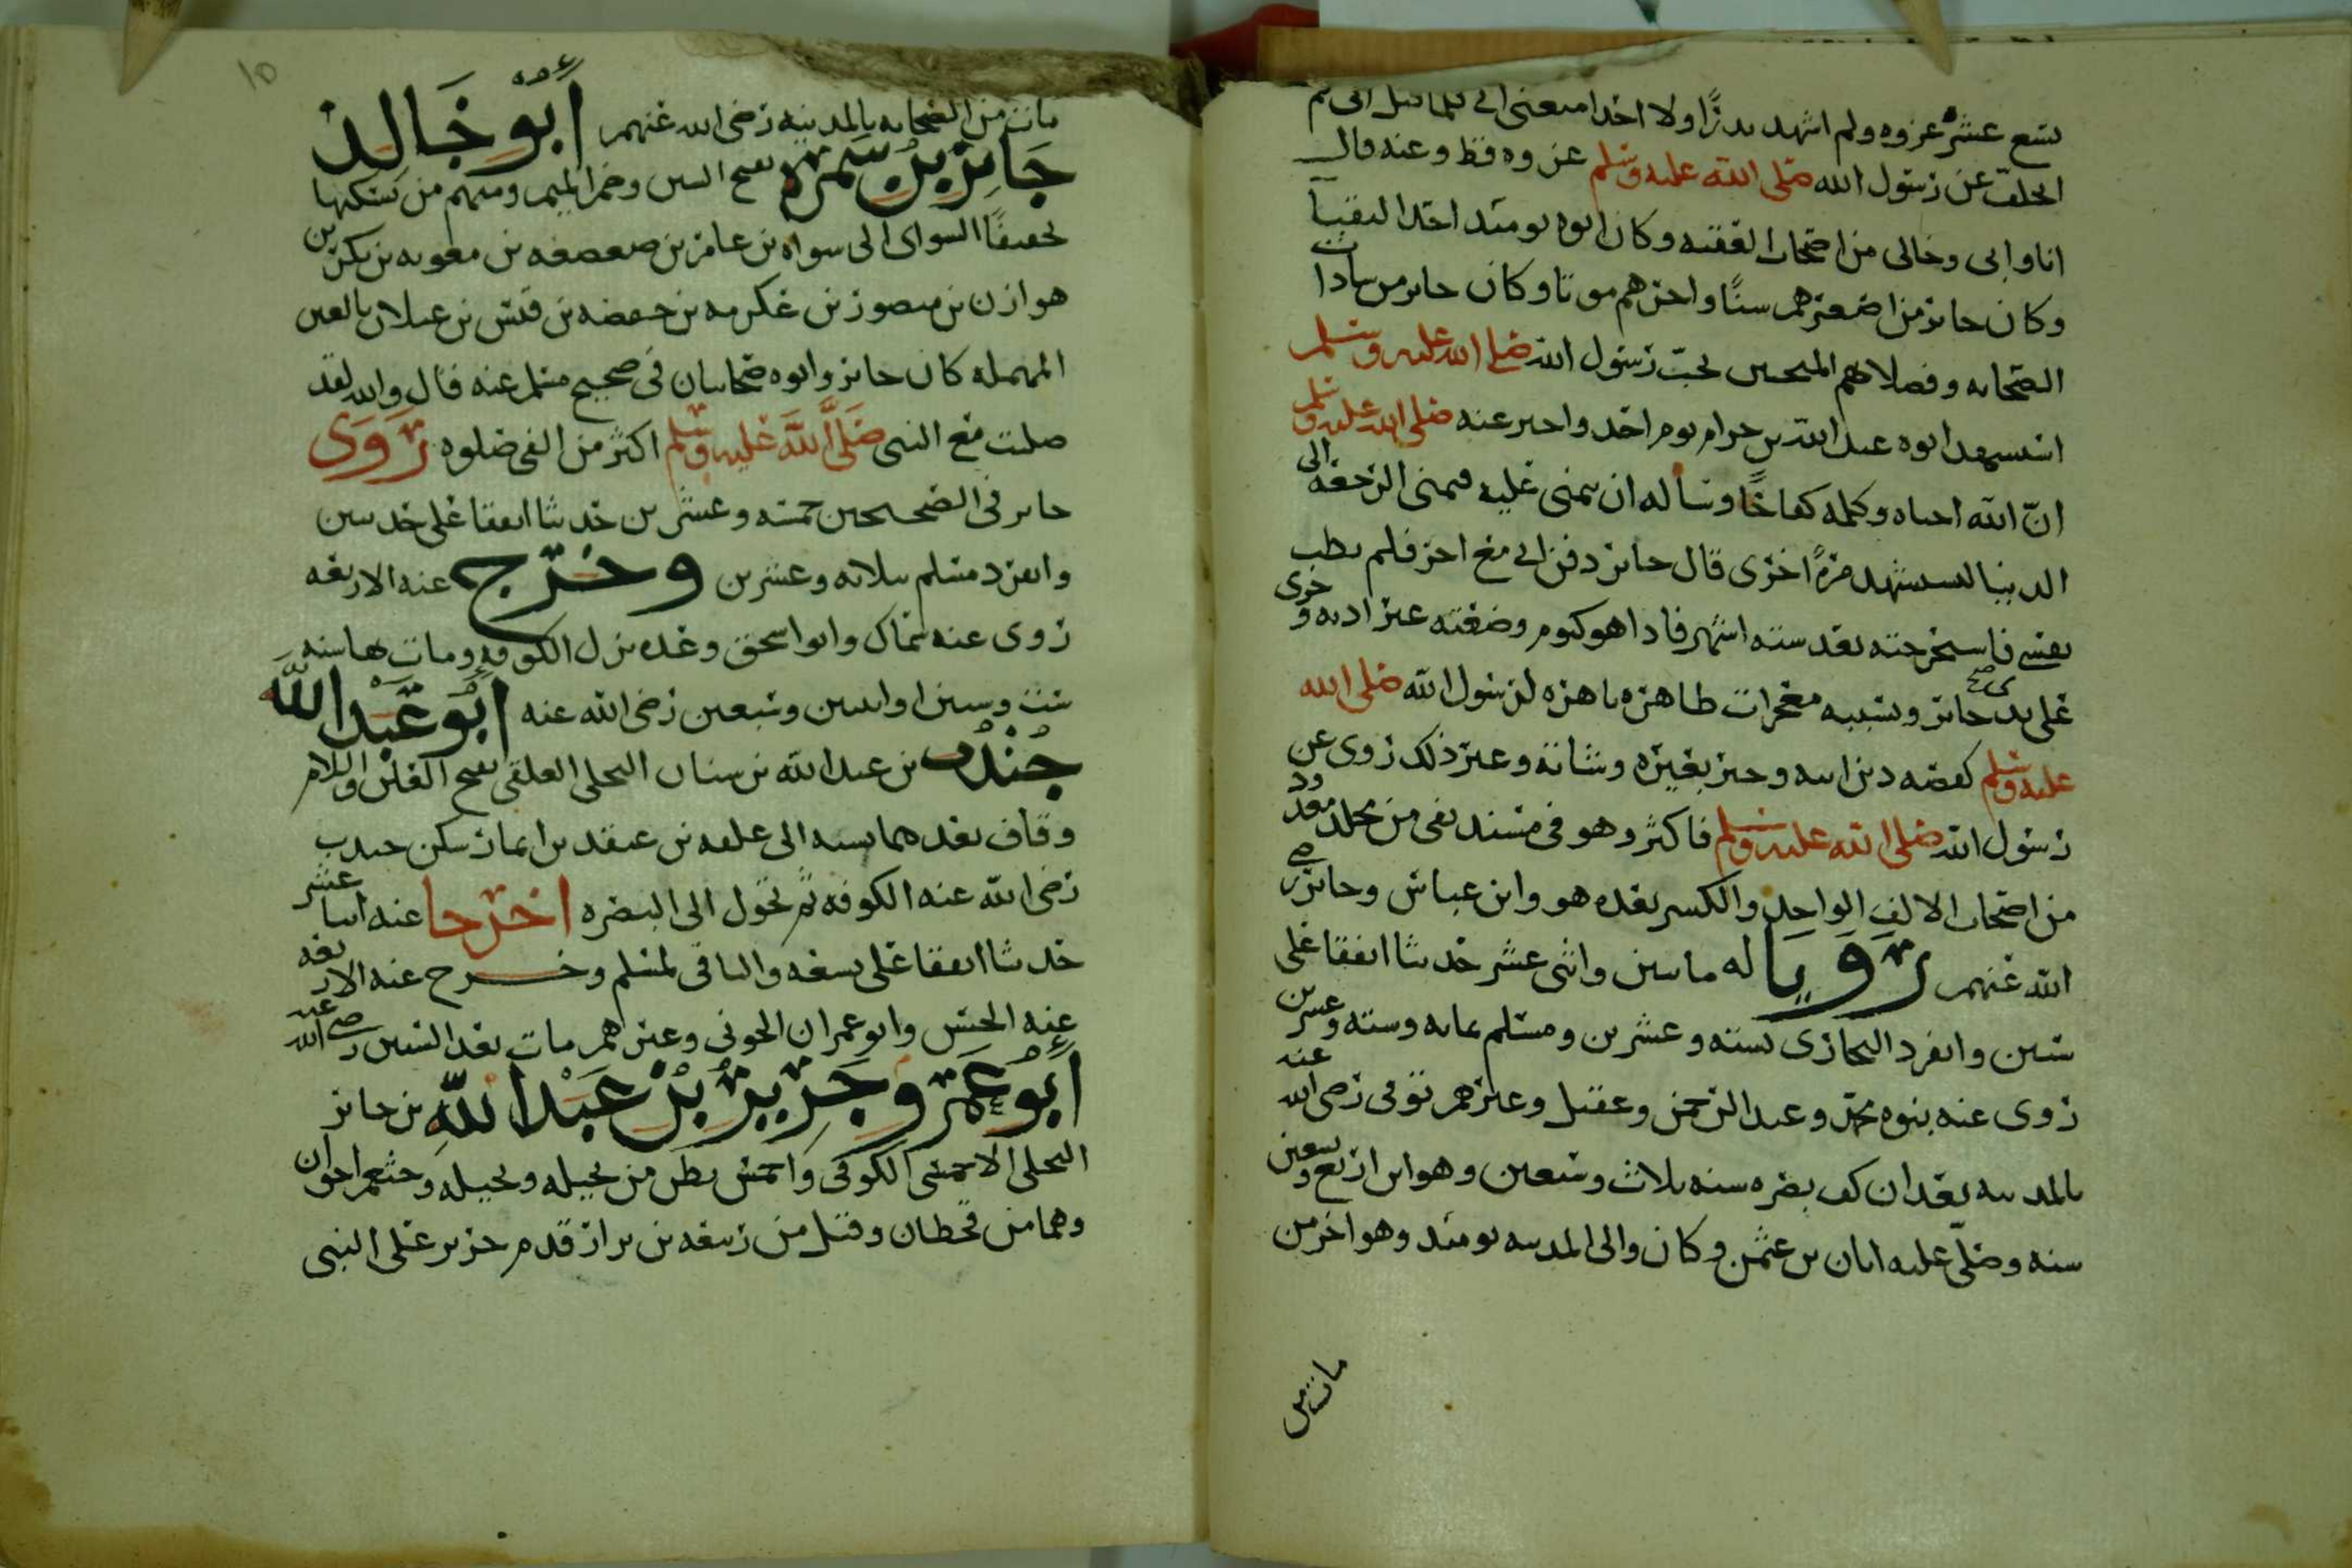 تسع عشرة غزوه ولم اشهد بدرًا ولا احدا منعنى ابى فلما قتل ابى لم
اتخلف عن رسول الله صلى الله عليه وسلم عزوه قط وعنه قال
انا وابى وخالى من اصحاب العقبه وكان ابوه يومئذ احد النقبا
وكان جابر من اصغرهم سنًا واخرهم موتا وكان جابر من سادات
الصحابه وفضلاهم المحبين بحب رسول الله صلى الله عليه وسلم
استشهد ابوه عبد الله بن حرام يوم احد واخبر عنه صلى الله عليه وسلم
انّ الله احياه وكلمه كفاحًا وساله ان يتمنى عليه فتمنى الرجعه الى
الدنيا ليستشهد مرةً اخرى قال جابر دفن ابى مع اخر فلم تطب
نفسى فاستخرجته بعد سته اشهر فاذا هو كيوم وضعته غير اذنه وجرى
على يد جابر وبسببه معجزات طاهره باهره لرسول الله صلى الله
عليه وسلم كقصه دين ابيه وخبر بعيره وشاته وغير ذلك روى عن
رسول الله صلى الله عليه وسلم فاكثر وهو فى مسند بقى بن مخلد معدود
من اصحاب الالف الواحد والكسر بعده هو وابن عباس وجابر رضى
الله عنهم رويا له مايتين واثنى عشر حديثا اتفقا على
ستين وانفرد البخارى بسته وعشرين ومسلم بمايه وسته وعشرين
روى عنه بنوه محمد وعبد الرحمن وعقيل وغيرهم توفى رضى الله عنه
بالمدينه بعد ان كف بصره سنه ثلاث وسبعين وهو ابن اربع وتسعين
سنه وصلّى عليه ابان بن عثمن وكان والى المدينه يومئذ وهو اخر من
مات من
مات من الصحابه بالمدينه رضى الله عنهم أبو خالد
جابر بن سمرة بفتح السين وضم الميم ومنهم من يسكنها
تخفيفًا السواى الى سواه بن عامر بن صعصعه بن معويه بن بكر بن
هوازن بن منصور بن عكرمه بن خصفه بن قيس بن عيلان بالعين
المهمله كان جابر وابوه صحابيان فى صحيح مسلم عنه قال والله لقد
صليت مع النبى صَلَّى اللّه عَليه وسلم اكثر من الفى صلوه رَوَى
جابر فى الصحيحين خمسه وعشرين حديثا اتفقا على حديثين
وانفرد مسلم بثلاثه وعشرين وخرّج عنه الاربعه
روى عنه سماك وابو اسحق وعده نزل الكوفه ومات بها سنه
ست وستين او اثنين وسبعين رضى الله عنه أبو عَبْد الله
جُنْدُب بن عبد الله بن سفيان البجلى العلقى بفتح العين واللام
وقاف بعدهما نسبه الى علقه بن عبقر بن انمار سكن جندب
رضى الله عنه الكوفه ثم تحول الى البصره اخرجا عنه اثنا عشر
حديثا اتفقا على سبعه والباقى لمسلم وخرج عنه الاربعه
عنه الحسن وابو عمران الجونى وغيرهم مات بعد الستين رضى الله عنه
أبُو عَمْرو جَرِيرُ بْنُ عَبْد اللّه بن جابر
البجلى الاحمسى الكوفى واحمس بطن من بجيله وبجيله وخثعم اخوان
وهما من قحطان وقيل من ربيعه بن نزار قدم جرير على النبى